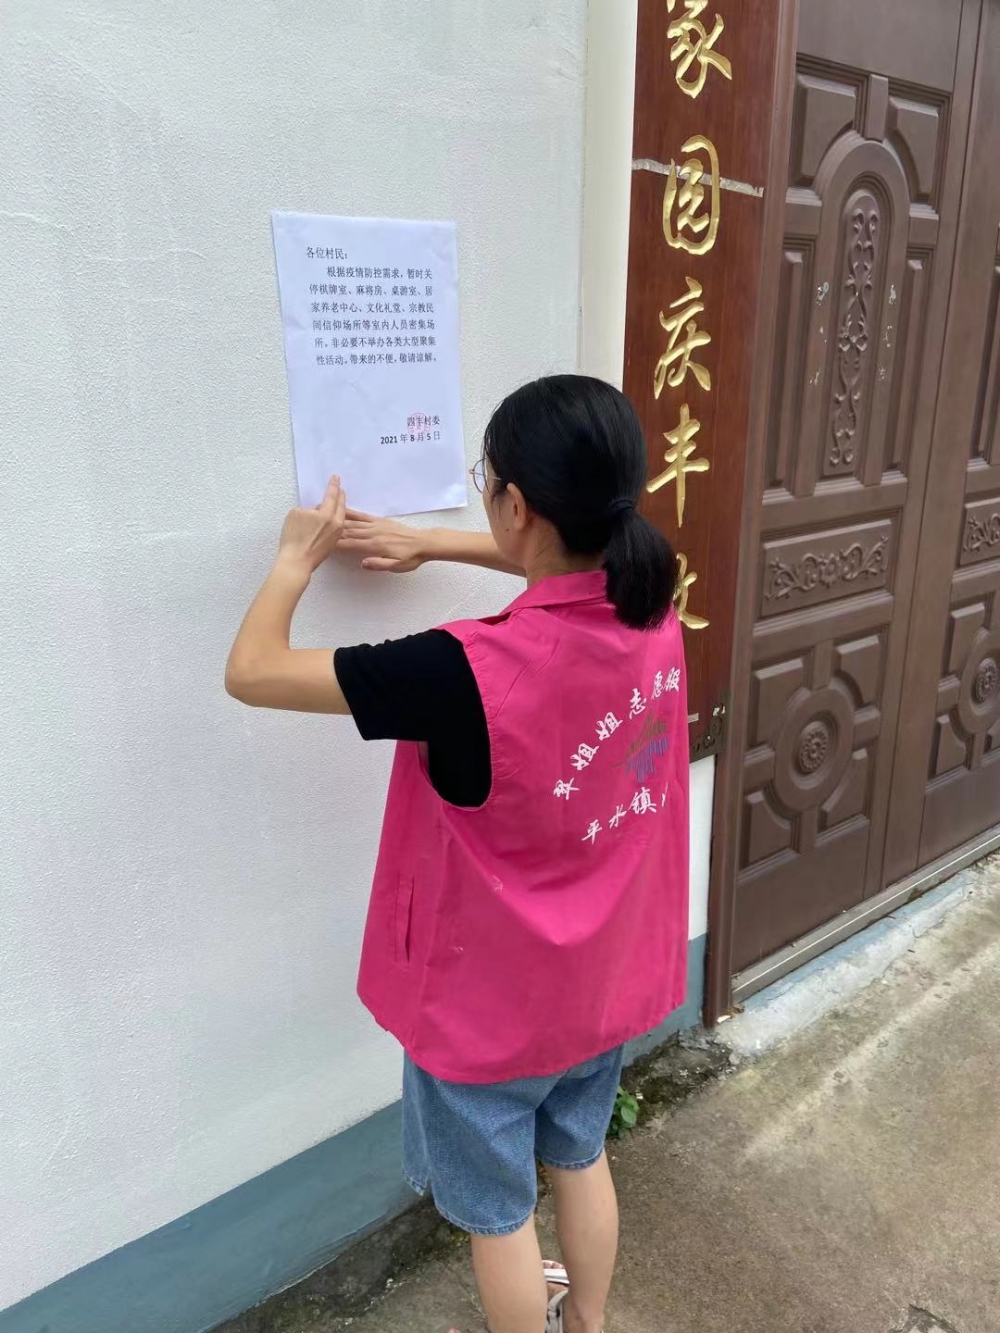 各位村民：
根据疫情防控需求，暂时关
停棋牌室、麻将房、桌游室、居
家养老中心、文化礼堂、宗教民
间信仰场所等室内人员密集场
所。非必要不举办各类大型聚集
性活动。带来的不便，敬请谅解。
四丰村委
2021年8月5日
家园庆丰收
姐姐志愿服
平水镇